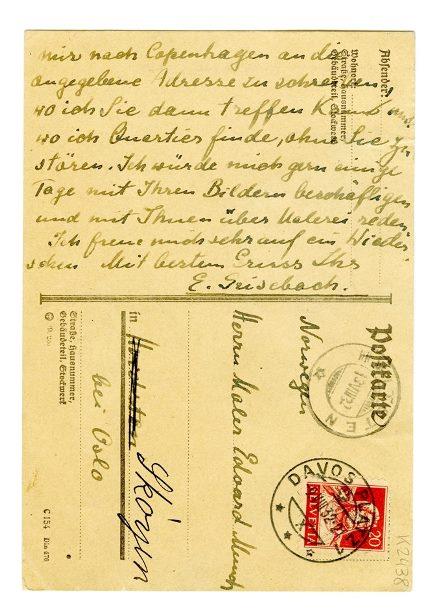 mir nach Copenhagen an die
angegebene Adresse zu schreiben,
wo ich Sie dann treffen kann und
wo ich Quartier finde, ohne Sie zu
stören. Ich würde mich gern einige
Tage mit Ihren Bildern beschäftigen
und mit Ihnen über Malerei reden.
Ich freue mich sehr auf ein Wieder-
sehen Mit bestem Gruss Ihr
E. Griesebach.
Absender:
Wohnort
Straße, Hausnummer,
Gebäudeteil, Stockwerk
Postkarte
Norwegen
Herrn Maler Edvard Munch
in
Skøyen
bei Oslo
Straße, Hausnummer,
Gebäudeteil, Stockwerk
C 154 Din 476
DAVOS PLATZ
HELVETIA
20
K2438